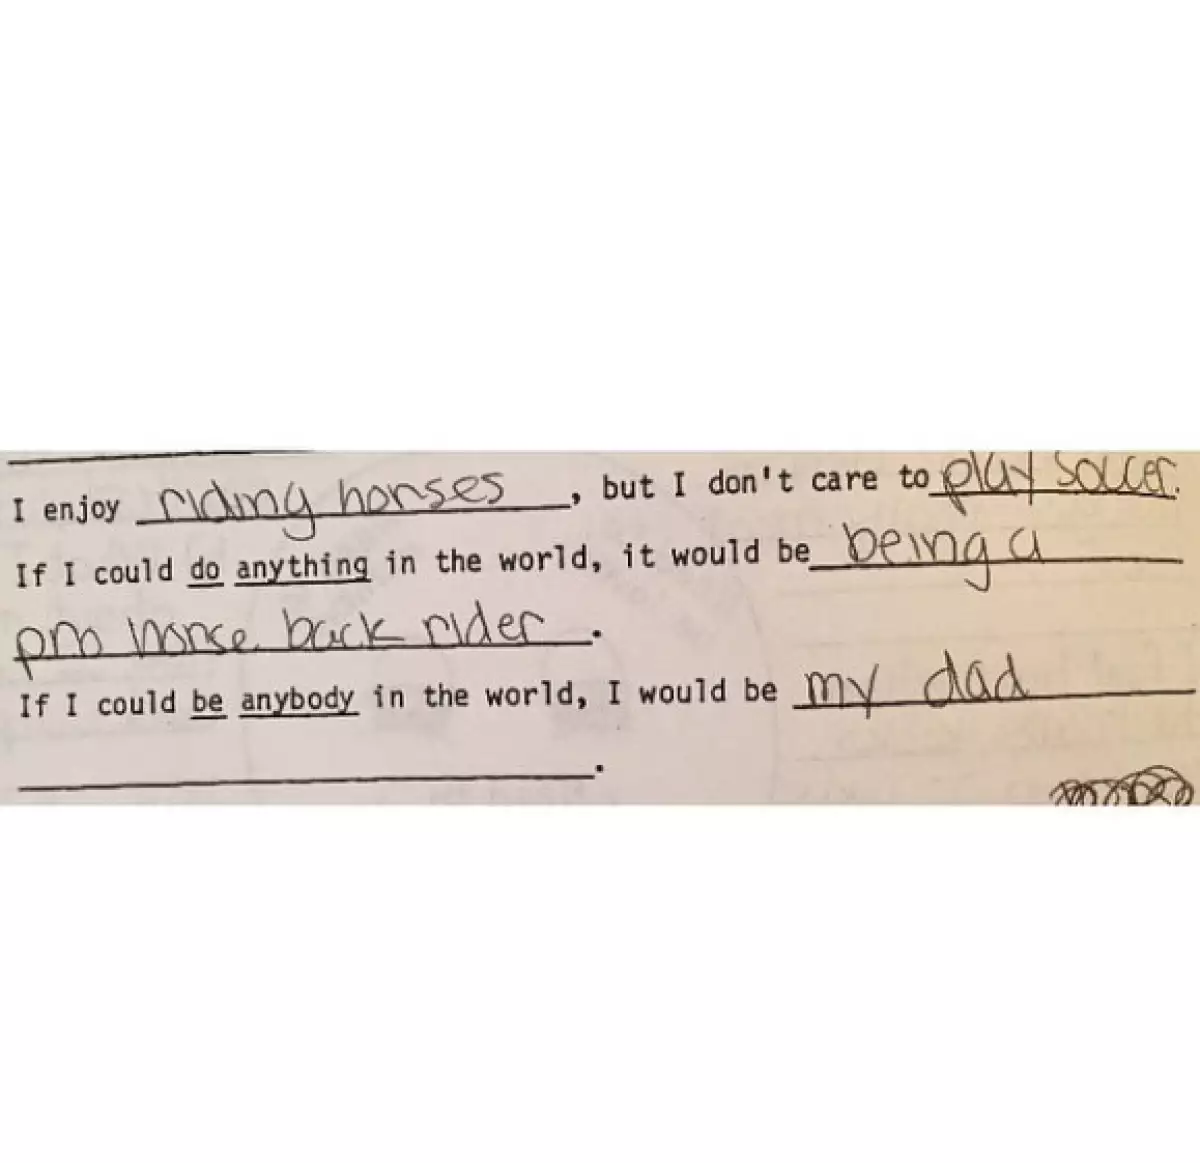 I enjoy riding horses, but I don't care to play soccer.
If I could do anything in the world, it would be being a
pro horse back rider.
If I could be anybody in the world, I would be my dad
.